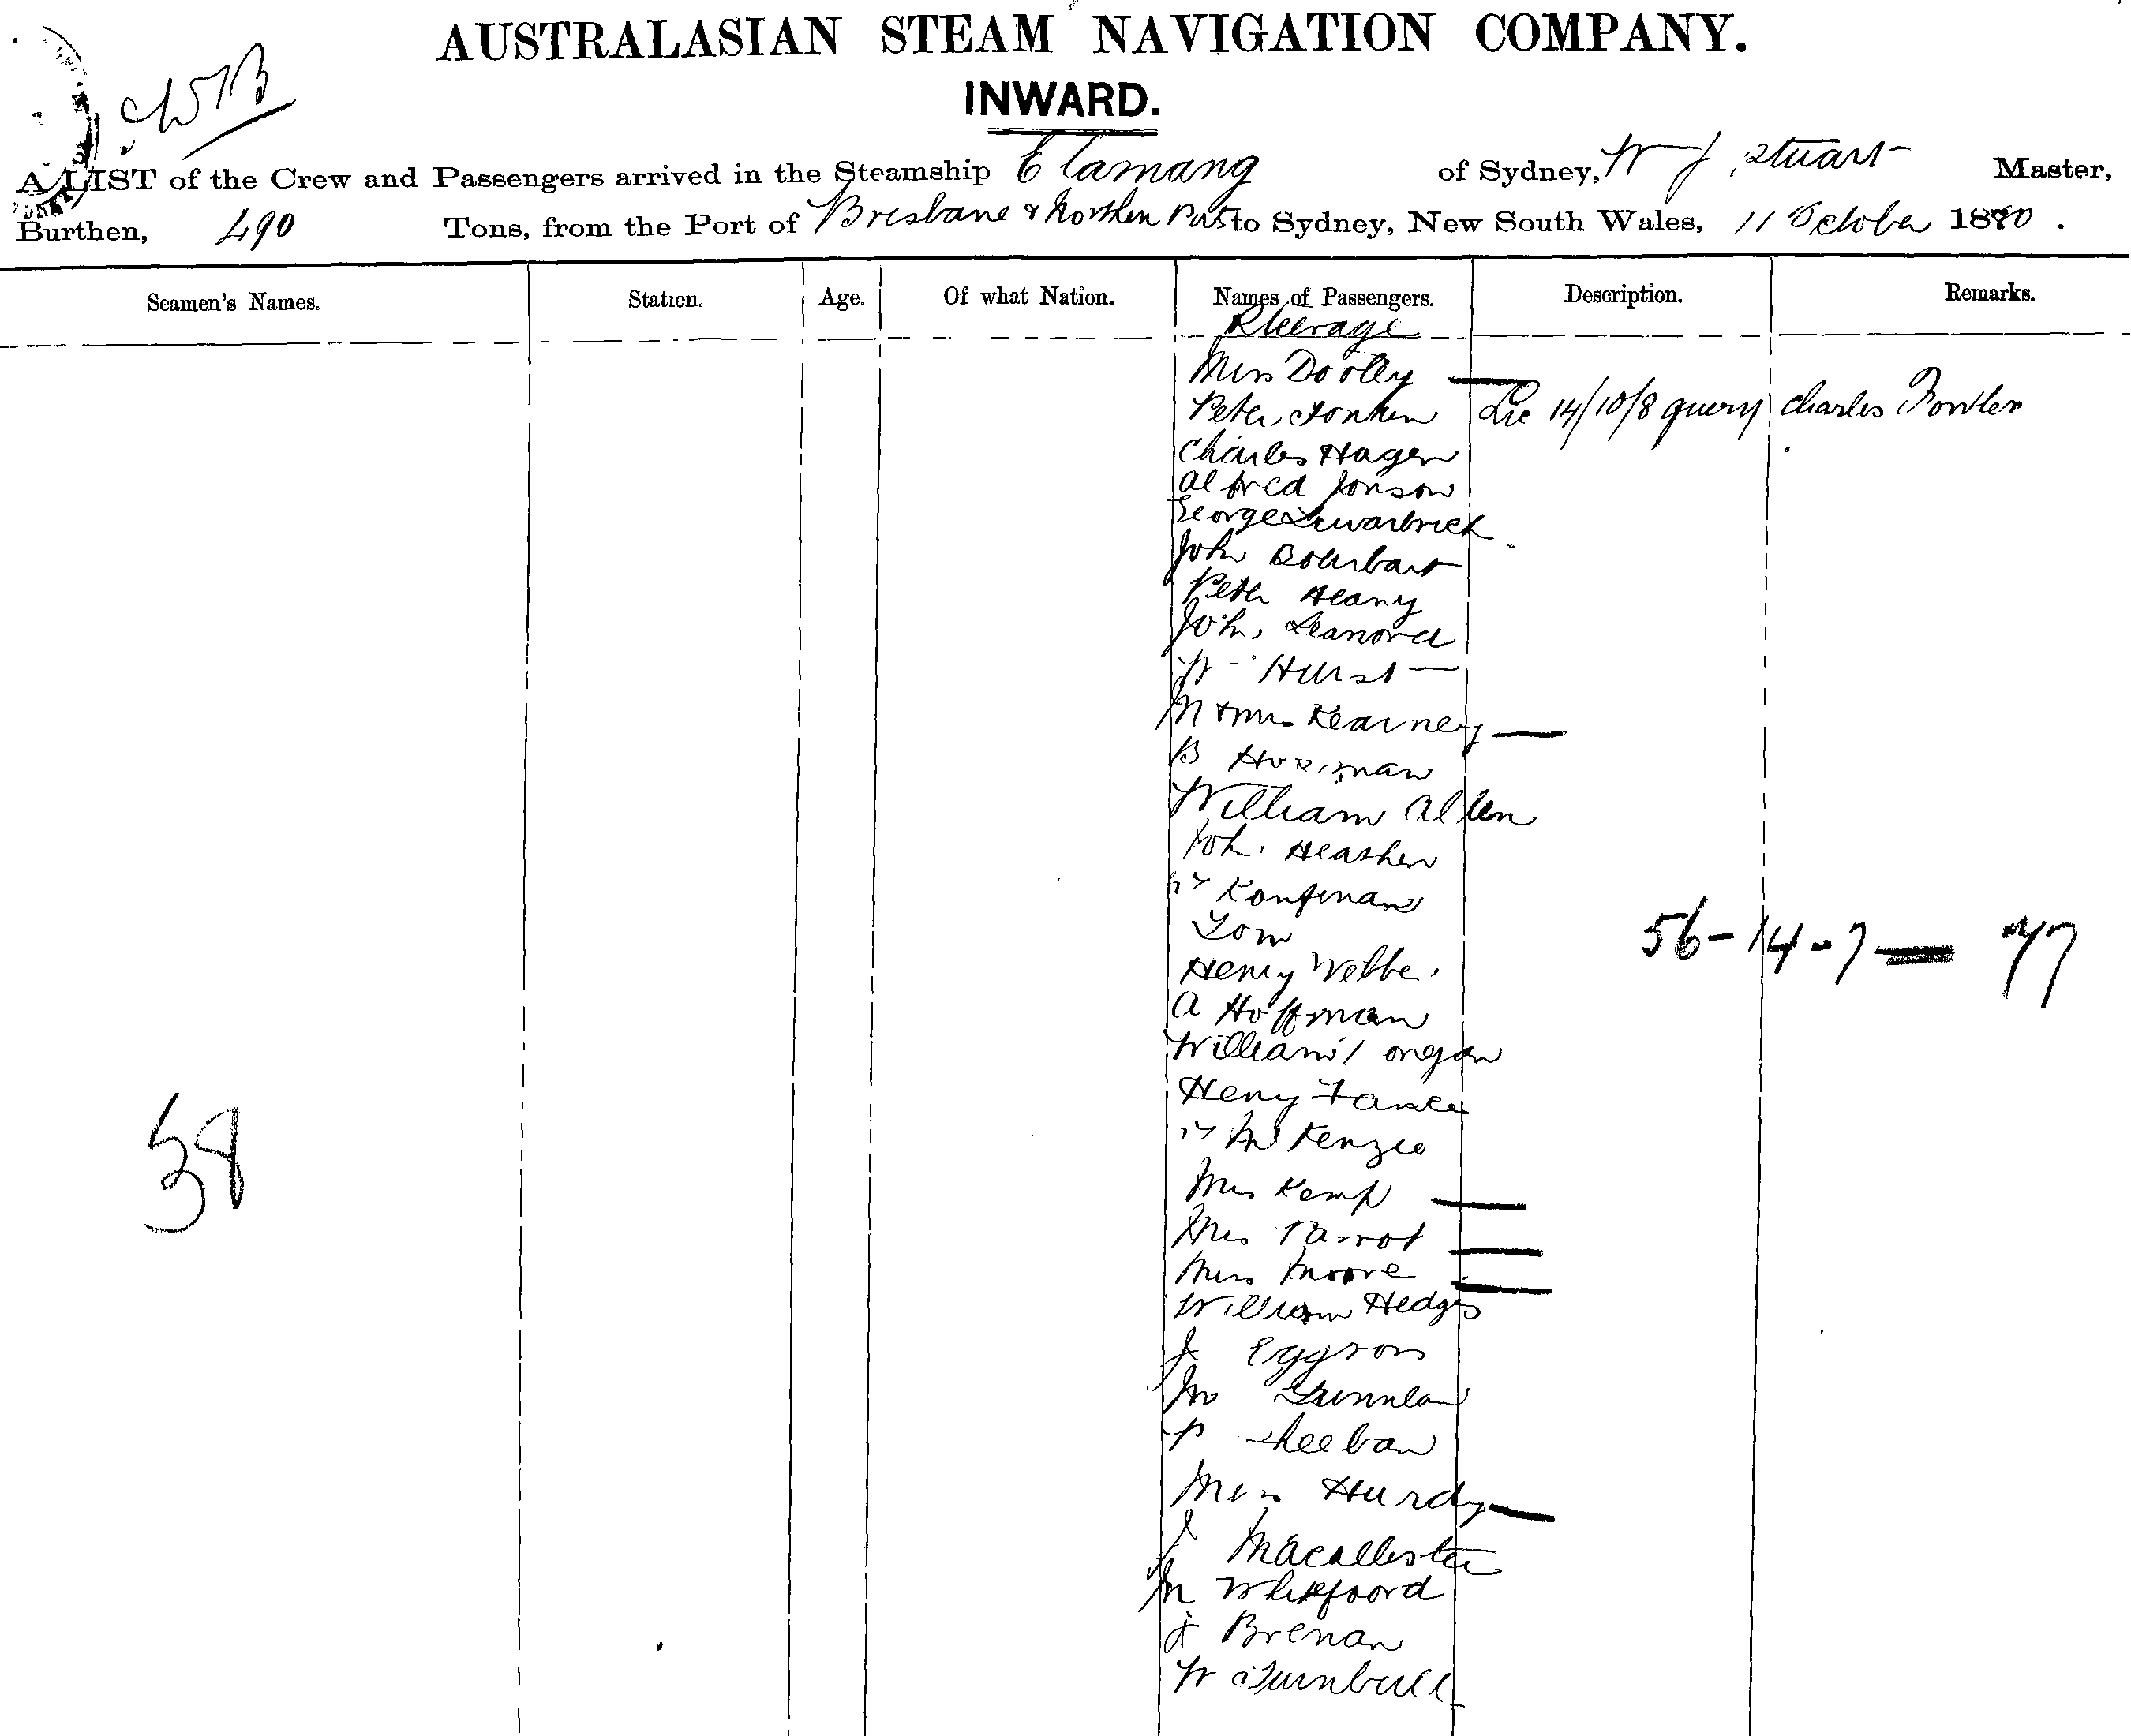 AUSTRALASIAN STEAM NAVIGATION COMPANY.
INWARD.
A LIST of the Crew and Passengers arrived in the Steamship Elamang of Sydney, W J Stuart Master,
Burthen, 490 Tons, from the Port of Brisbane & Northern Ports to Sydney, New South Wales, 11 October 1880.
Seamen's Names. Station. Age. Of what Nation. Names of Passengers. Description. Remarks.
Steerage
Miss Dooley
Peter See 14/10/8 query Charles Fowler
Charles Hagen
Alfred Jonson
George
John
Peter Heany
John
W Hurst
M & Mrs Kearney
B
William Allen
Joh.

Tom
56-14-7 — 77
Henry Webbe.
A Hoffman
William
Henry
38
McKenzie
Mrs Kemp
Mrs Parrot
Miss Moore
William Hedges
J

P Sheehan
Miss Hurdy
J Macallister
M Whitefoord
J Brenan
W Turnbull